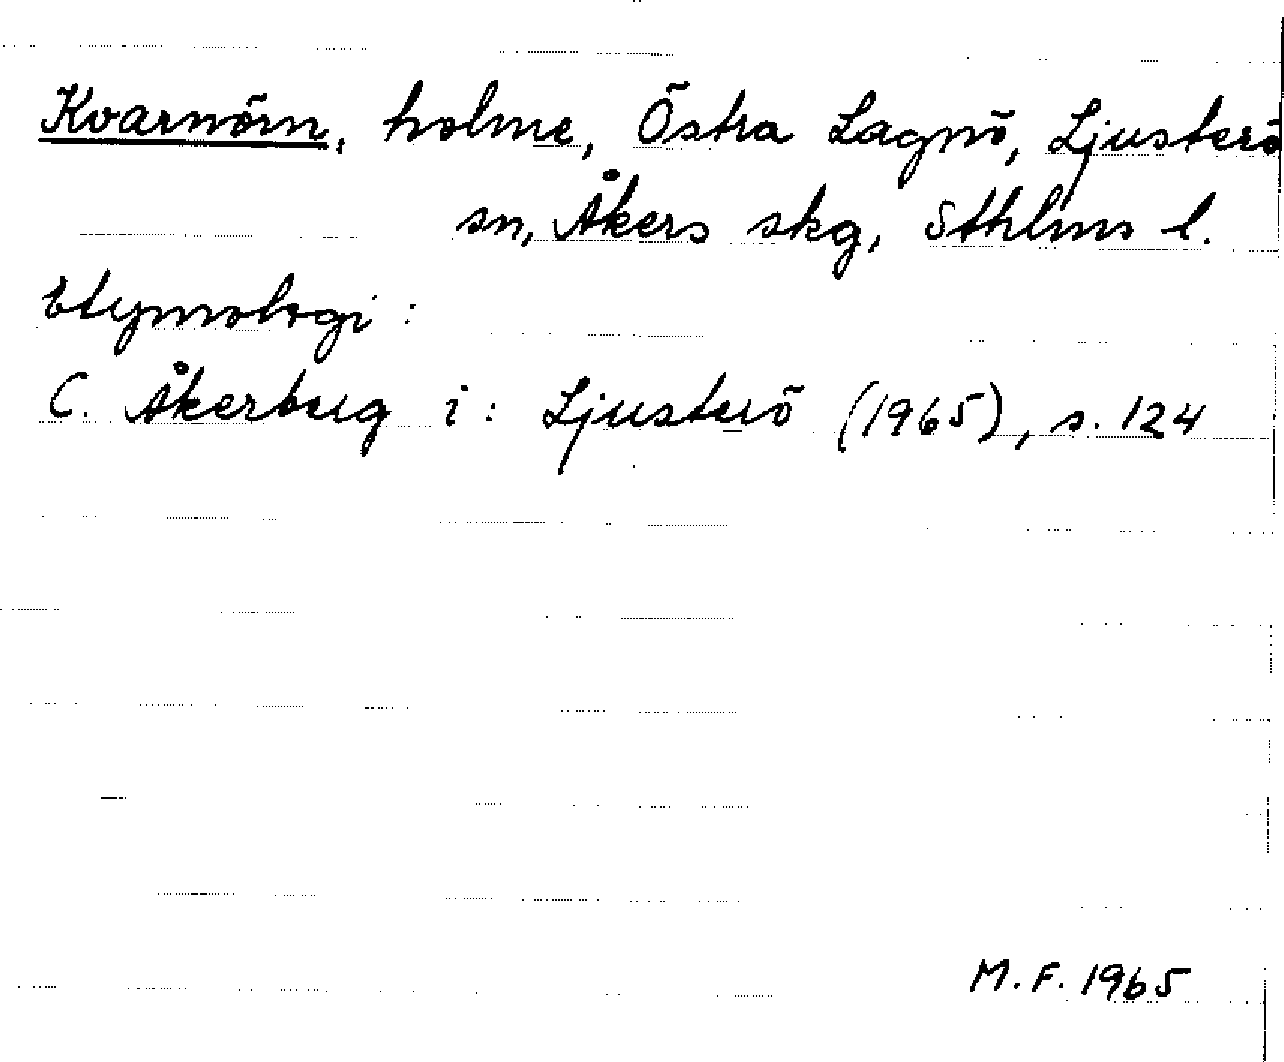 Kvarnörn, holme, Östra Lagnö, Ljusterö
sn, Åkers skg, Sthlms l.
Etymologi:
C. Åkerberg i: Ljusterö (1965), s. 124
M.F. 1965